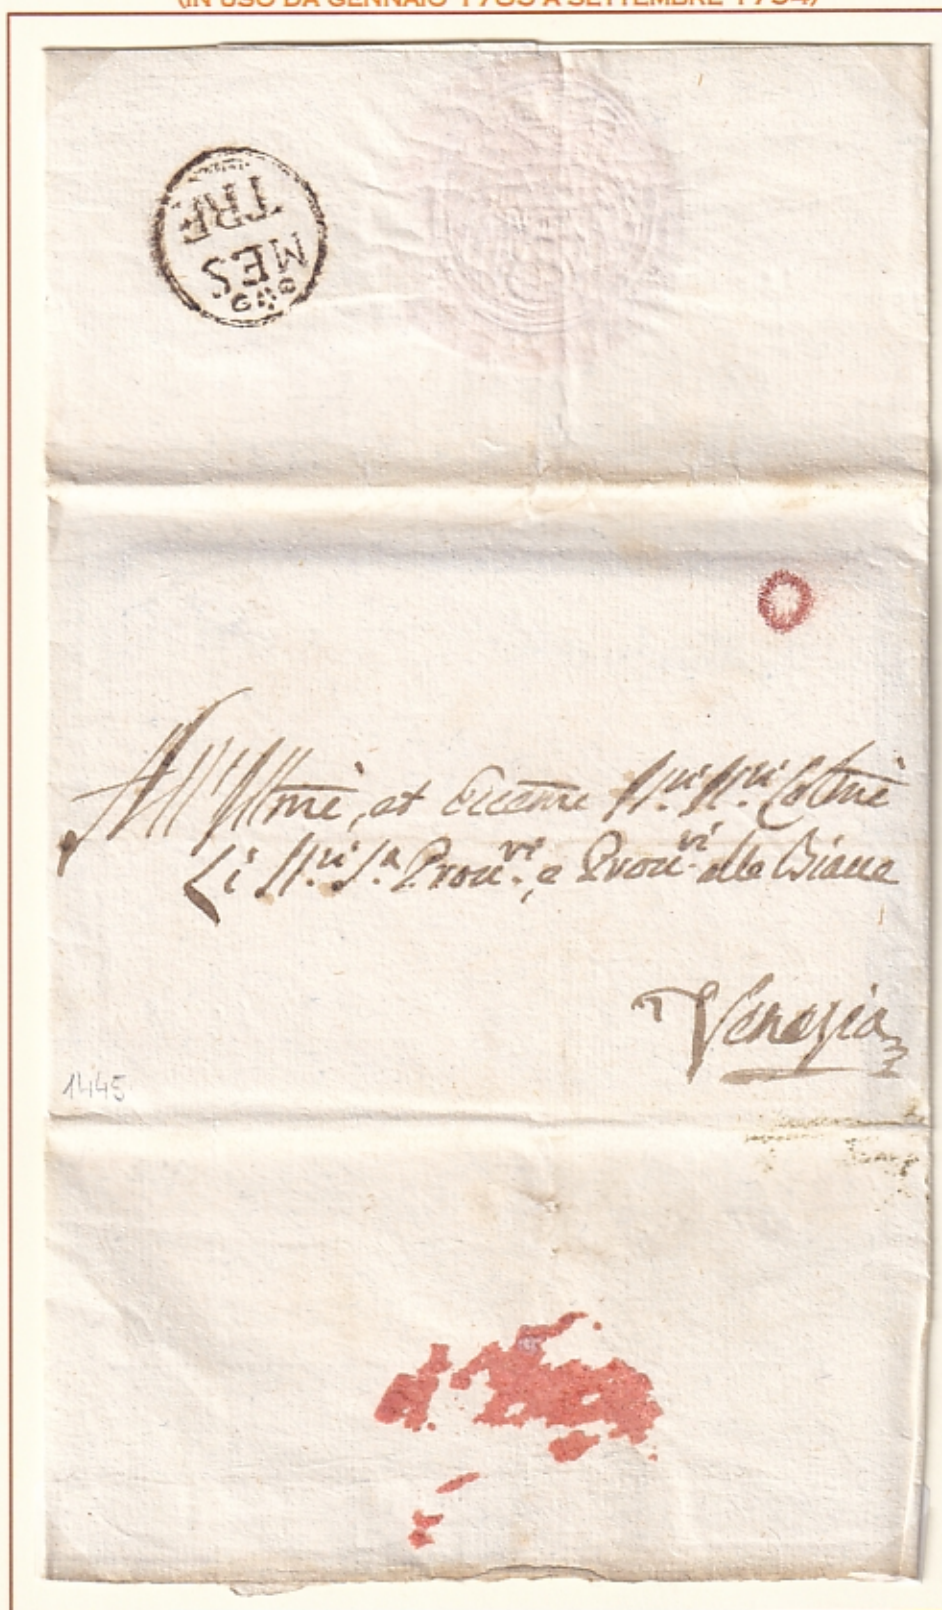 (IN USO DA GENNAIO 1783 A SETTEMBRE 1794)
MES
TRE
All'Illmi, et Eccemi SS.ri SS.ri Colmi
Li SS.ri S.a Prov.ri, e Prov.ri alle Biave
Venezia
1445